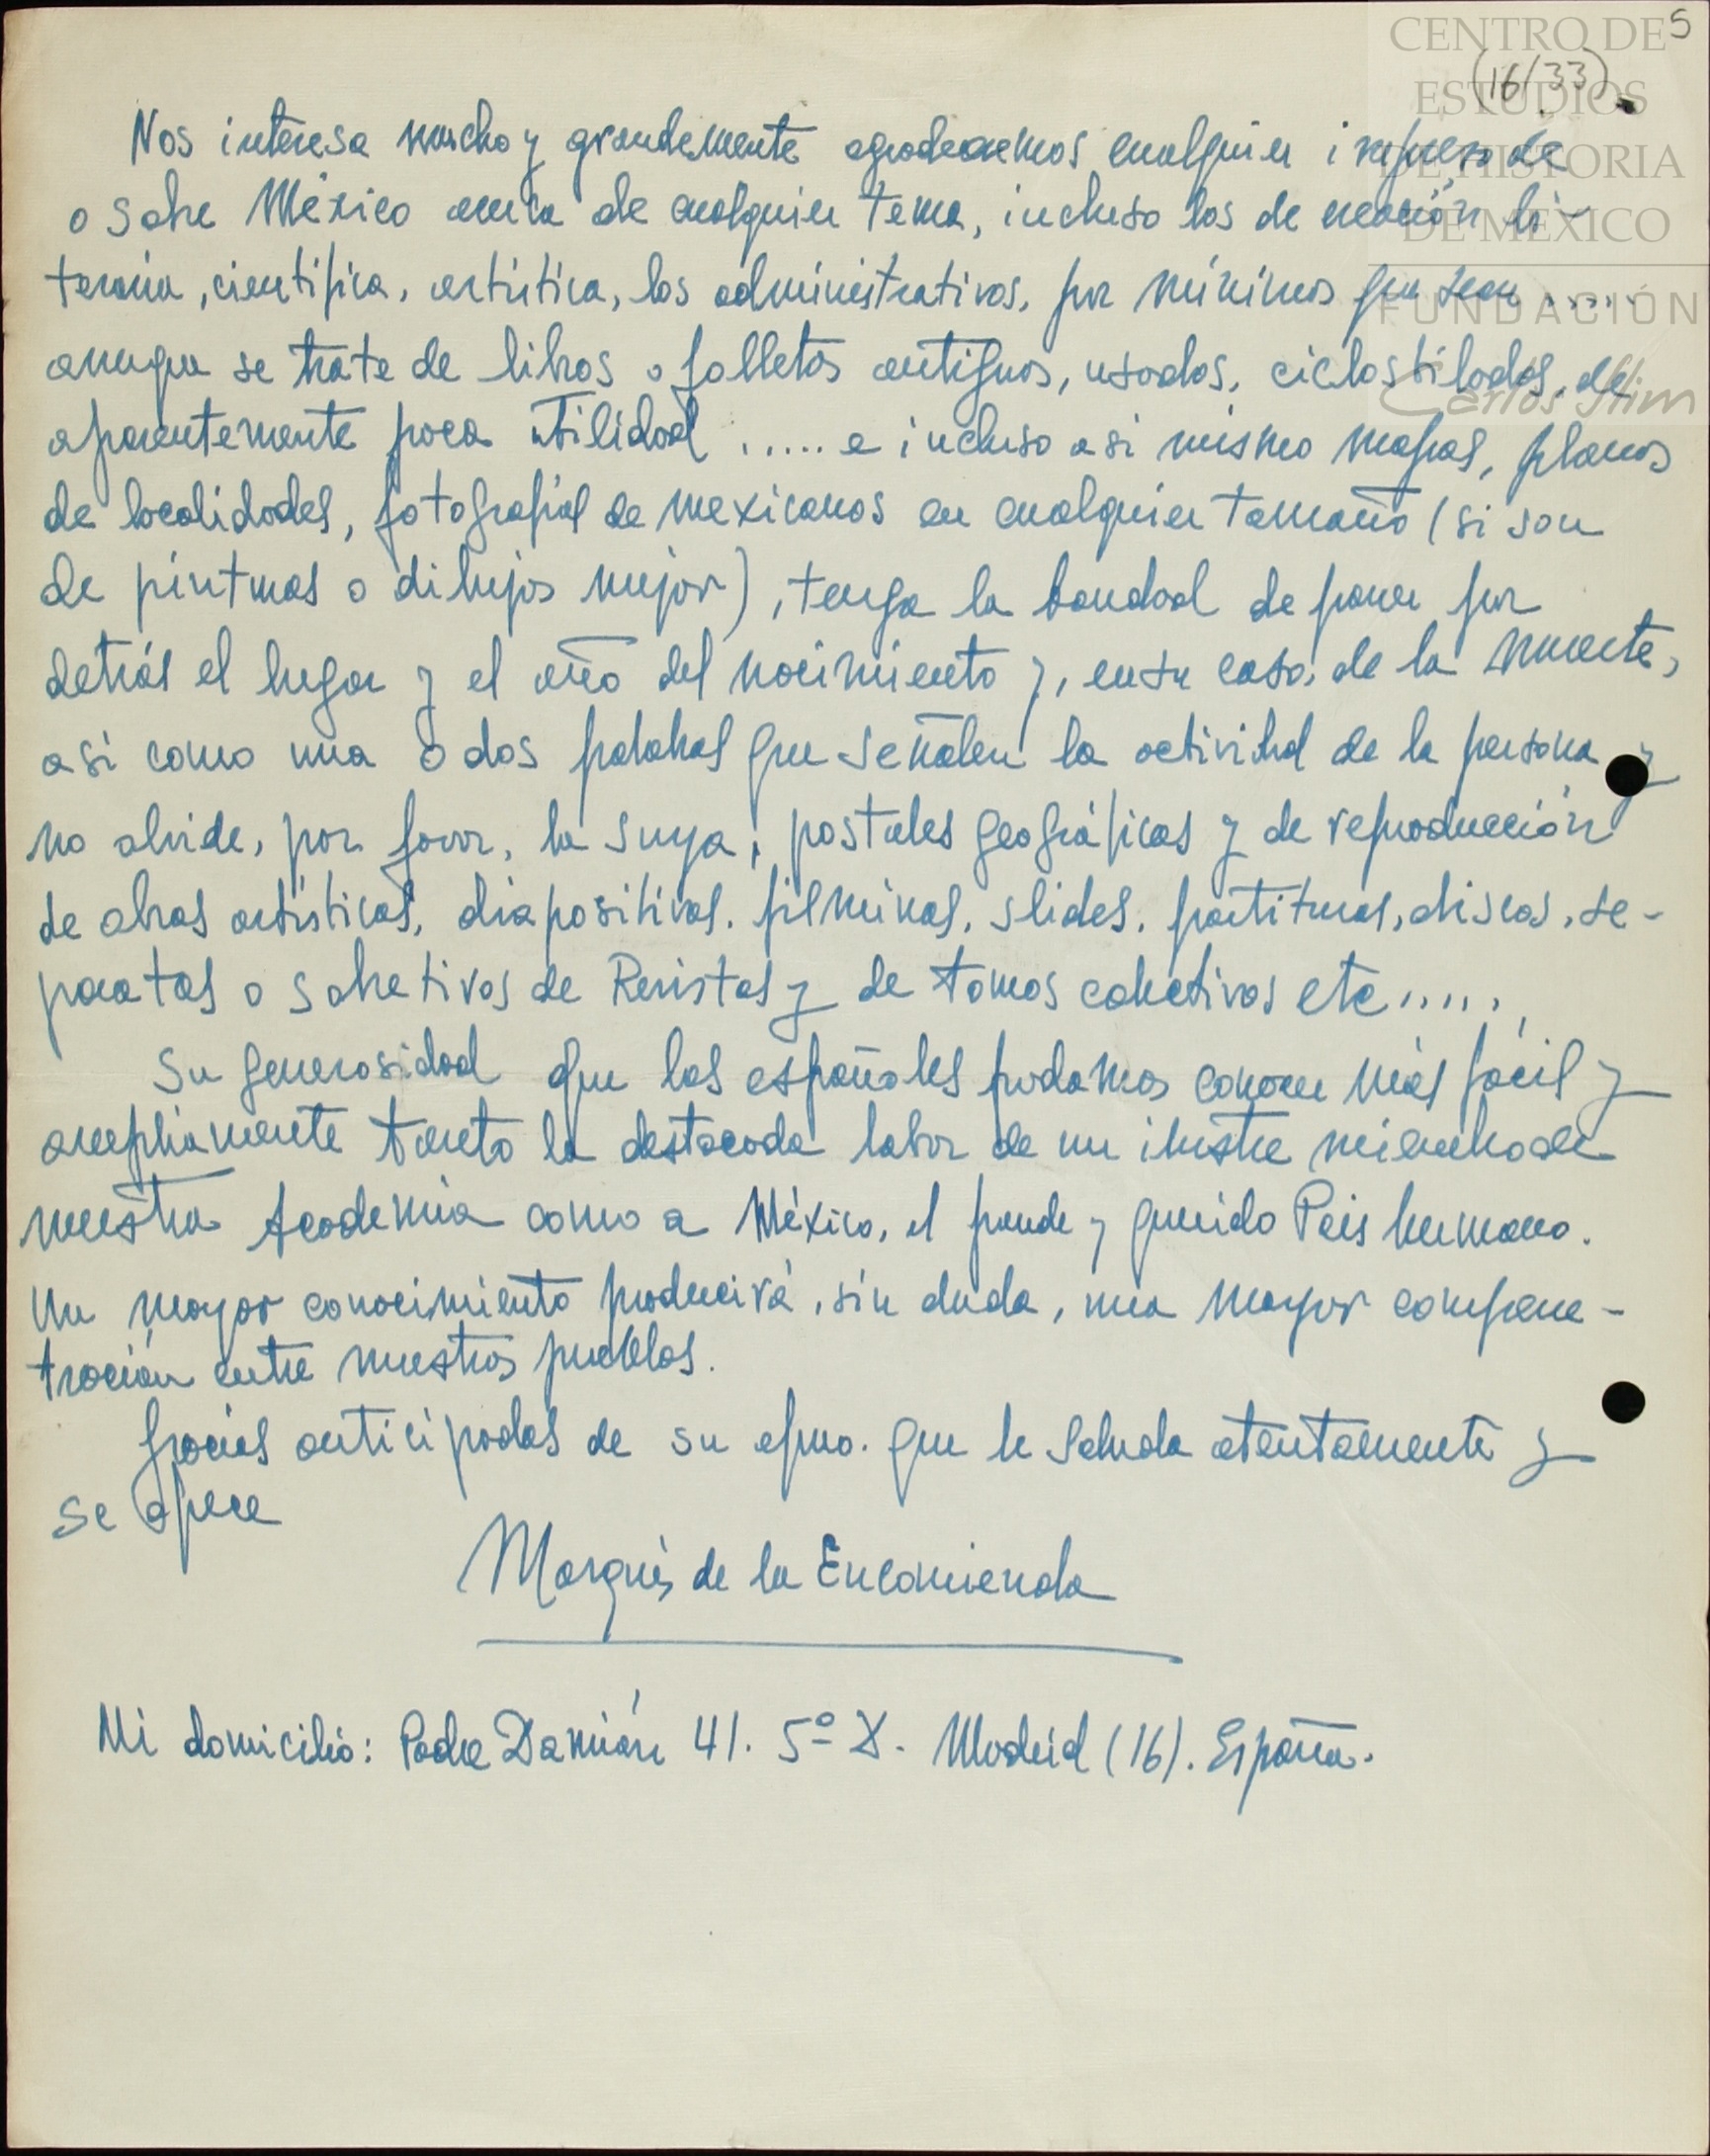 CENTRO DE
ESTUDIOS
DE HISTORIA
DE MÉXICO
FUNDACIÓN
Carlos Slim
5
(16/33)
Nos interesa mucho y grandemente agradecemos cualquier impreso de
o sobre México acerca de cualquier tema, incluso los de creación li-
teraria, científica, artística, los administrativos, por mínimos que sean .....
aunque se trate de libros o folletos antiguos, usados, ciclostilados, de
aparentemente poca utilidad ..... e incluso asi mismo mapas, planos
de localidades, fotografías de mexicanos en cualquier tamaño (si son
de pinturas o dibujos mejor), tenga la bondad de poner por
detrás el lugar y el año del nacimiento y, en su caso, de la muerte,
asi como una o dos palabras que señalen la actividad de la persona y
no olvide, por favor, la suya; postales geográficas y de reproducción
de obras artísticas, diapositivas, filminas, slides, partituras, discos, se-
paratas o sobretiros de Revistas y de tomos colectivos etc.....
Su generosidad que los españoles podamos conocer más fácil y
ampliamente tanto la destacada labor de un ilustre miembro de
nuestra Academia como a México, el grande y querido País hermano.
Un mayor conocimiento producirá, sin duda, una mayor compene-
tración entre nuestros pueblos.
Gracias anticipadas de su afmo. que le saluda atentamente y
se ofrece
Marqués de la Encomienda
Mi domicilio: Padre Damián 41. 5º D. Madrid (16). España.